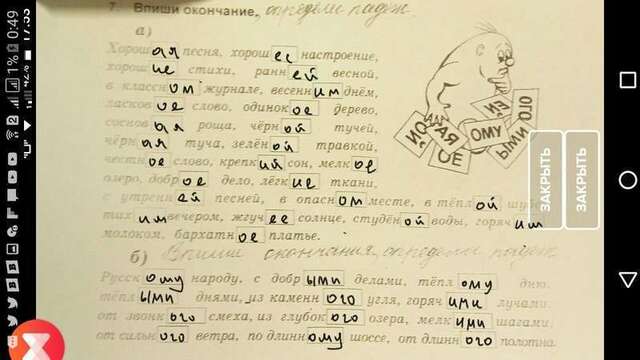 7. Впиши окончание, определи падеж.
а)
Хорошая песня, хорошее настроение,
хорошие стихи, ранней весной,
в классном журнале, весенним днём,
ласковое слово, одинокое дерево,
сосновая роща, чёрной тучей,
чёрная туча, зелёной травкой,
честное слово, крепкий сон, мелкое
озеро, доброе дело, лёгкие ткани,
с утренней песней, в опасном месте, в тёплой
тихим вечером, жгучее солнце, студёной воды, горячим
молоком, бархатное платье.
б) Впиши окончания, определи падеж
Русскому народу, с добрыми делами, тёплому дню,
тёплыми днями, из каменного угля, горячими лучами,
от звонкого смеха, из глубокого озера, мелкими шагами,
от сильного ветра, по длинному шоссе, от длинного полотна
ОЙ
АЯ
ОЕ
ОМУ
ЫМИ
ОГО
ЕЙ
ЗАКРЫТЬ
ЗАКРЫТЬ
0:49
1%
17:33